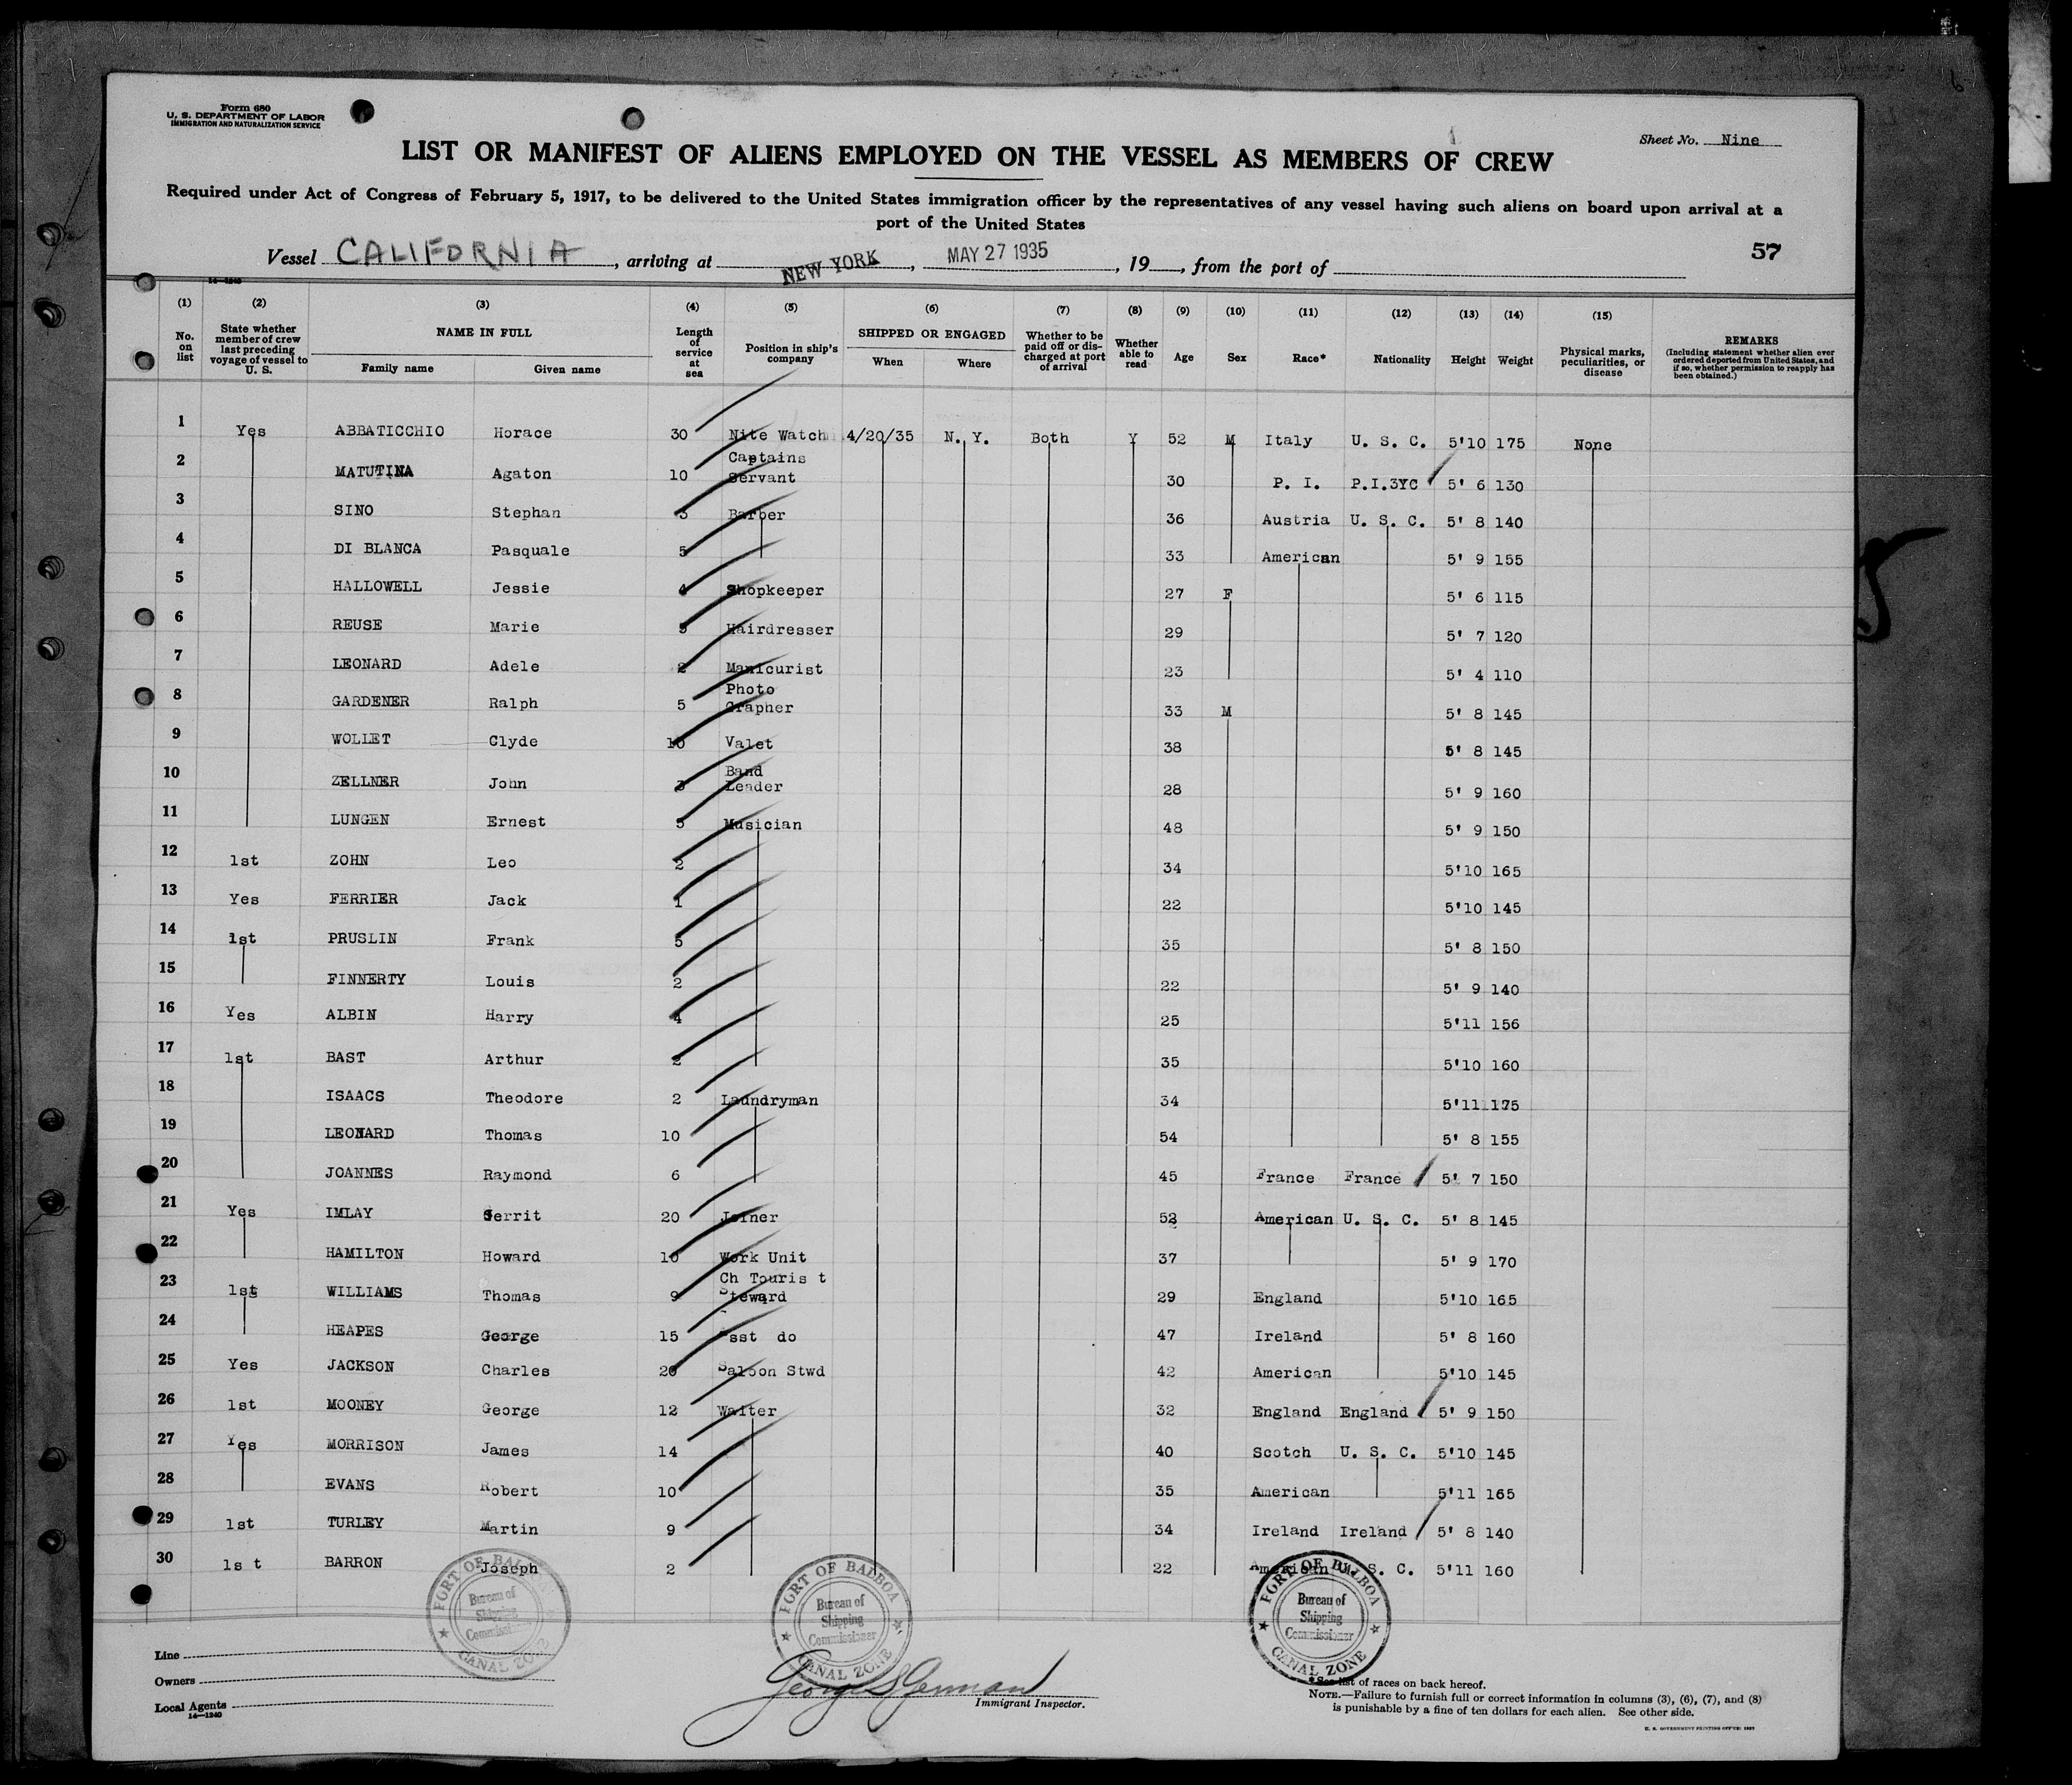 Form 680
U. S. DEPARTMENT OF LABOR
IMMIGRATION AND NATURALIZATION SERVICE
Sheet No. Nine
LIST OR MANIFEST OF ALIENS EMPLOYED ON THE VESSEL AS MEMBERS OF CREW
Required under Act of Congress of February 5, 1917, to be delivered to the United States immigration officer by the representatives of any vessel having such aliens on board upon arrival at a
port of the United States
57
Vessel CALIFORNIA, arriving at NEW YORK, MAY 27 1935, 19, from the port of
14-1240
(1) (2) (3) (4) (5) (6) (7) (8) (9) (10) (11) (12) (13) (14) (15)
No. on list State whether member of crew last preceding voyage of vessel to U. S. NAME IN FULL Family name Given name Length of service at sea Position in ship's company SHIPPED OR ENGAGED When Where Whether to be paid off or discharged at port of arrival Whether able to read Age Sex Race* Nationality Height Weight Physical marks, peculiarities, or disease REMARKS (Including statement whether alien ever ordered deported from United States, and if so, whether permission to reapply has been obtained.)
1 Yes ABBATICCHIO Horace 30 Nite Watch 4/20/35 N. Y. Both Y 52 M Italy U. S. C. 5'10 175 None
2 MATUTINA Agaton 10 Captains Servant 30 P. I. P.I.3YC 5' 6 130
3 SINO Stephan 3 Barber 36 Austria U. S. C. 5' 8 140
4 DI BLANCA Pasquale 5 33 American 5' 9 155
5 HALLOWELL Jessie 4 Shopkeeper 27 F 5' 6 115
6 REUSE Marie Hairdresser 29 5' 7 120
7 LEONARD Adele 2 Manicurist 23 5' 4 110
8 GARDENER Ralph 5 Photo Grapher 33 M 5' 8 145
9 WOLLET Clyde 10 Valet 38 5' 8 145
10 ZELLNER John 3 Band Leader 28 5' 9 160
11 LUNGEN Ernest Musician 48 5' 9 150
12 1st ZOHN Leo 2 34 5'10 165
13 Yes FERRIER Jack 1 22 5'10 145
14 1st PRUSLIN Frank 5 35 5' 8 150
15 FINNERTY Louis 2 22 5' 9 140
16 Yes ALBIN Harry 4 25 5'11 156
17 1st BAST Arthur 2 35 5'10 160
18 ISAACS Theodore 2 Laundryman 34 5'11 175
19 LEONARD Thomas 10 54 5' 8 155
20 JOANNES Raymond 6 45 France France 5' 7 150
21 Yes IMLAY Gerrit 20 Joiner 52 American U. S. C. 5' 8 145
22 HAMILTON Howard 10 Work Unit 37 5' 9 170
23 1st WILLIAMS Thomas 9 Ch Touris t Steward 29 England 5'10 165
24 HEAPES George 15 sst do 47 Ireland 5' 8 160
25 Yes JACKSON Charles 20 Saloon Stwd 42 American 5'10 145
26 1st MOONEY George 12 Waiter 32 England England 5' 9 150
27 Yes MORRISON James 14 40 Scotch U. S. C. 5'10 145
28 EVANS Robert 10 35 American 5'11 165
29 1st TURLEY Martin 9 34 Ireland Ireland 5' 8 140
30 1s t BARRON Joseph 2 22 American U. S. C. 5'11 160
PORT OF BALBOA Bureau of Shipping Commissioner CANAL ZONE
PORT OF BALBOA Bureau of Shipping Commissioner CANAL ZONE
PORT OF BALBOA Bureau of Shipping Commissioner CANAL ZONE
Line
Owners
Local Agents
14-1240
Immigrant Inspector.
*See list of races on back hereof.
NOTE.—Failure to furnish full or correct information in columns (3), (6), (7), and (8)
is punishable by a fine of ten dollars for each alien. See other side.
U. S. GOVERNMENT PRINTING OFFICE: